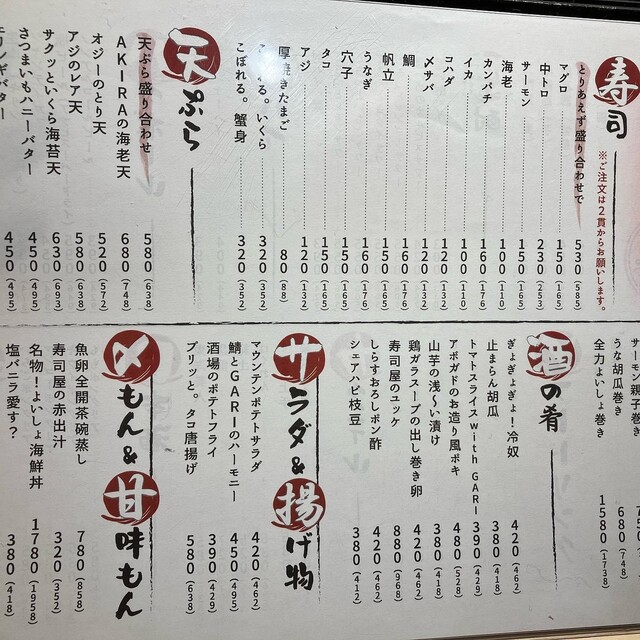 寿司
※ご注文は2貫からお願いします。
とりあえず盛り合わせで 530(585)
マグロ 150(165)
中トロ 230(253)
サーモン 150(165)
海老 100(110)
カンパチ 160(176)
イカ 100(110)
コハダ 120(132)
〆サバ 120(132)
鯛 160(176)
帆立 150(165)
うなぎ 160(176)
穴子 150(165)
タコ 150(165)
アジ 120(132)
厚焼きたまご 80(88)
いくら 320(352)
こぼれる。蟹身 320(352)
天ぷら
天ぷら盛り合わせ 580(638)
AKIRAの海老天 680(748)
オジーのとり天 520(572)
アジのレア天 580(638)
サクッといくら海苔天 630(693)
さつまいもハニーバター 450(495)
エリンギバター 450(495)
サーモン親子巻き
うな胡瓜巻き 680(748)
全力よいしょ巻き 1580(1738)
酒の肴
ぎょぎょぎょ!冷奴 420(462)
止まらん胡瓜 380(418)
トマトスライスwith GARI 390(429)
アボガドのお造り風ポキ 480(528)
山芋の浅〜い漬け 380(418)
鶏ガラスープの出し巻き卵 420(462)
寿司屋のユッケ 880(968)
しらすおろしポン酢 420(462)
シェアハピ枝豆 380(412)
サラダ&揚げ物
マウンテンポテトサラダ 420(462)
鯖とGARIのハーモニー 450(495)
酒場のポテトフライ 390(429)
プリッと。タコ唐揚げ 580(638)
〆もん&甘味もん
魚卵全開茶碗蒸し 780(858)
寿司屋の赤出汁 320(352)
名物!よいしょ海鮮丼 1780(1958)
塩バニラ愛す? 380(418)